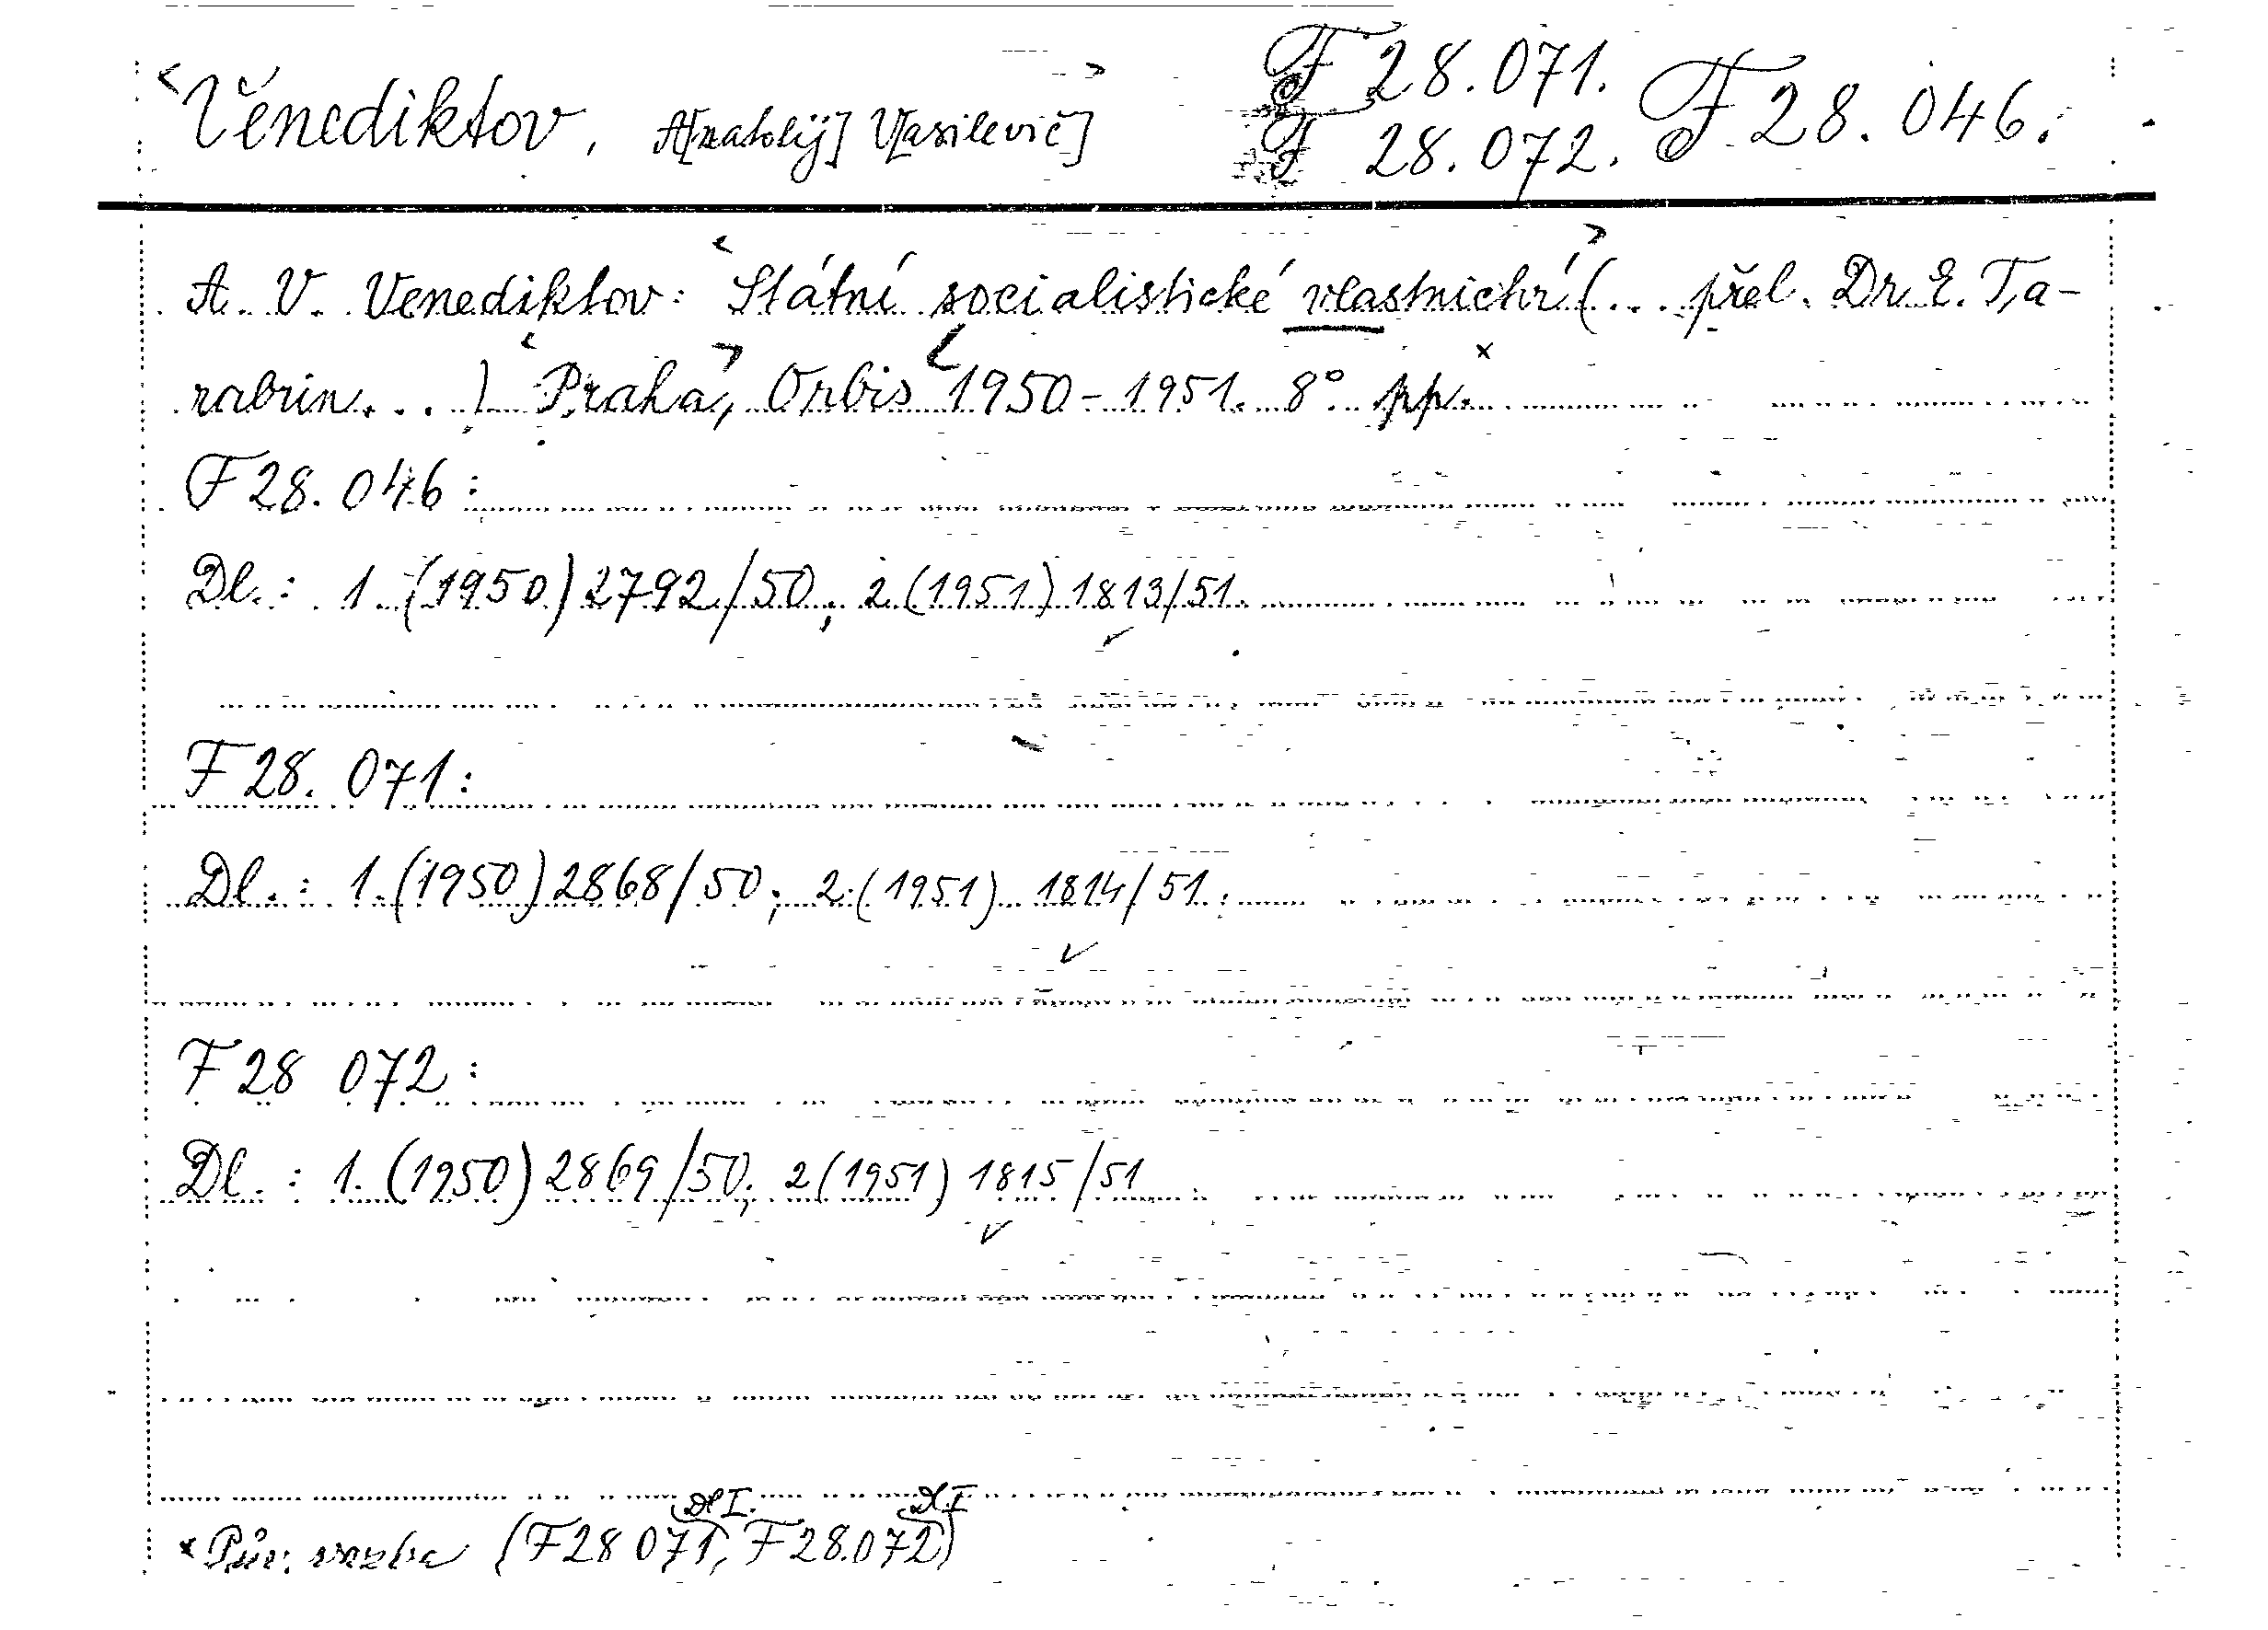 <Věnediktov, A[natolij] V[asilevič]>
F 28.071. F 28.046.
F 28.072.
A. V. Venediktov: <Státní socialistické vlastnictví> (... přel. Dr. E. Ta-
rabrin...) <Praha>, Orbis <1950-1951. 8° pp.ˣ
F 28.046:
Dl.: 1. (1950) 2792/50; 2. (1951) 1813/51.
F 28.071:
Dl.: 1. (1950) 2868/50; 2. (1951) 1814/51.
F 28 072:
Dl.: 1. (1950) 2869/50; 2 (1951) 1815/51
Dl I. Dl. I
ˣ Pův. vazba (F 28 071, F 28.072)